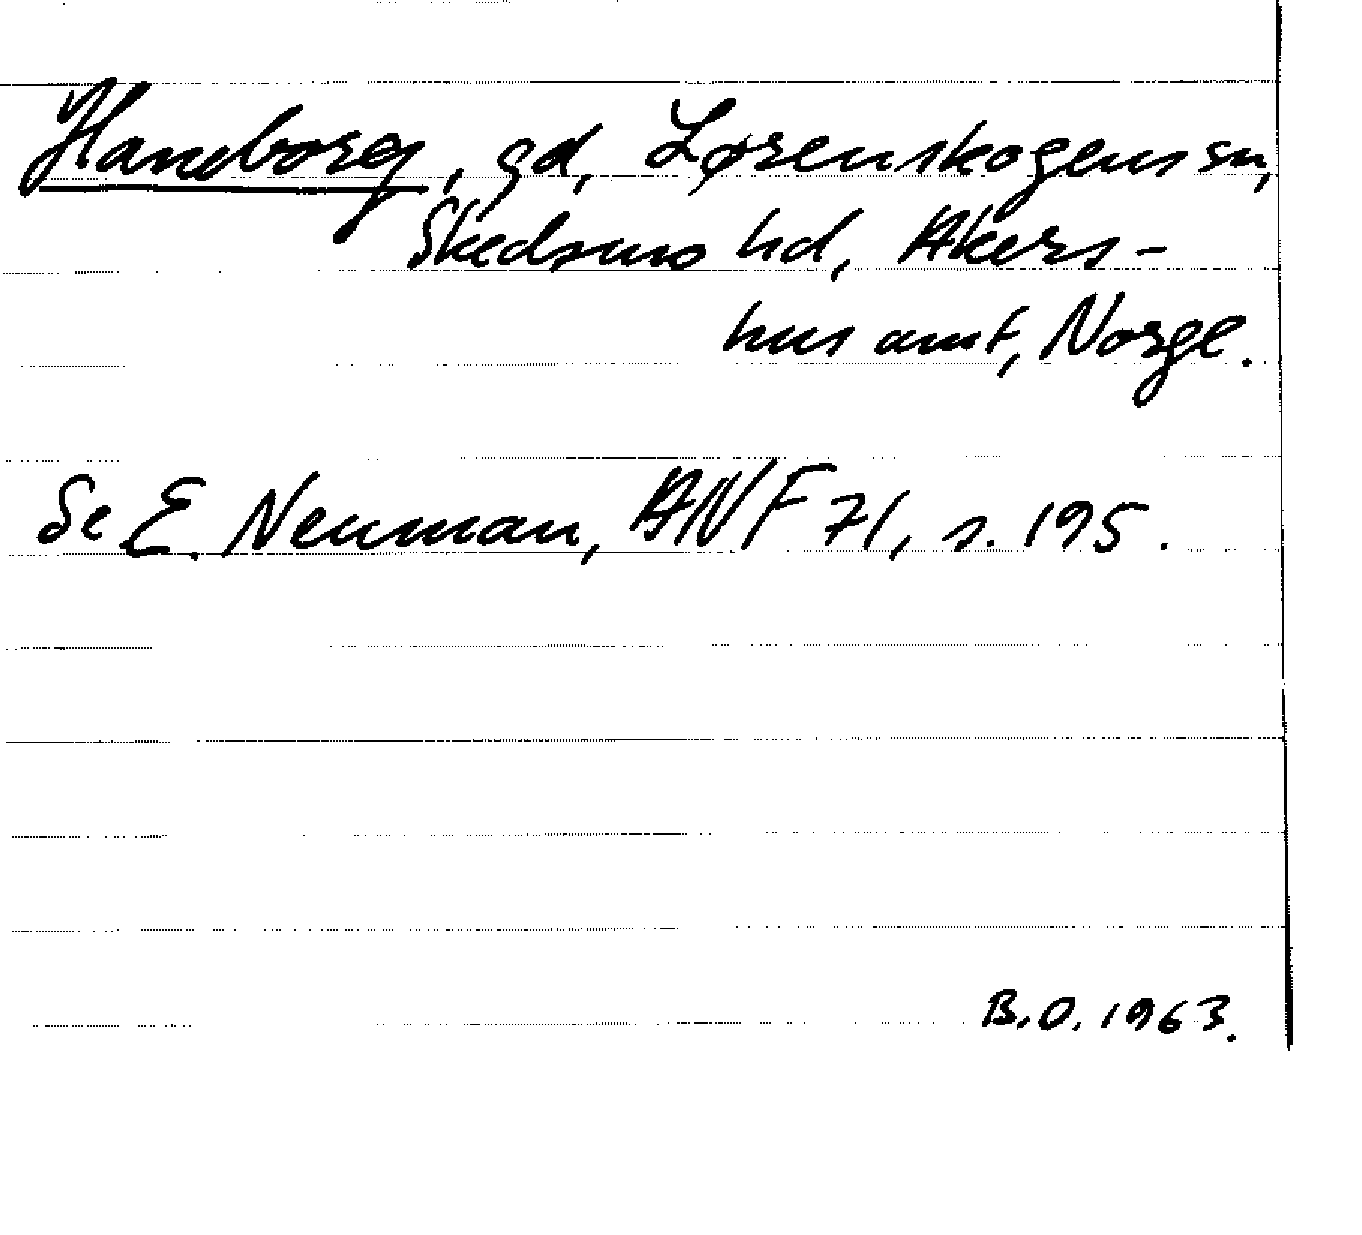 Haneborg, gd, Lørenskogens sn,
Skedsmo hd, Akers-
hus amt, Norge.
Se E. Neuman, ANF 71, s. 195.
B.O. 1963.